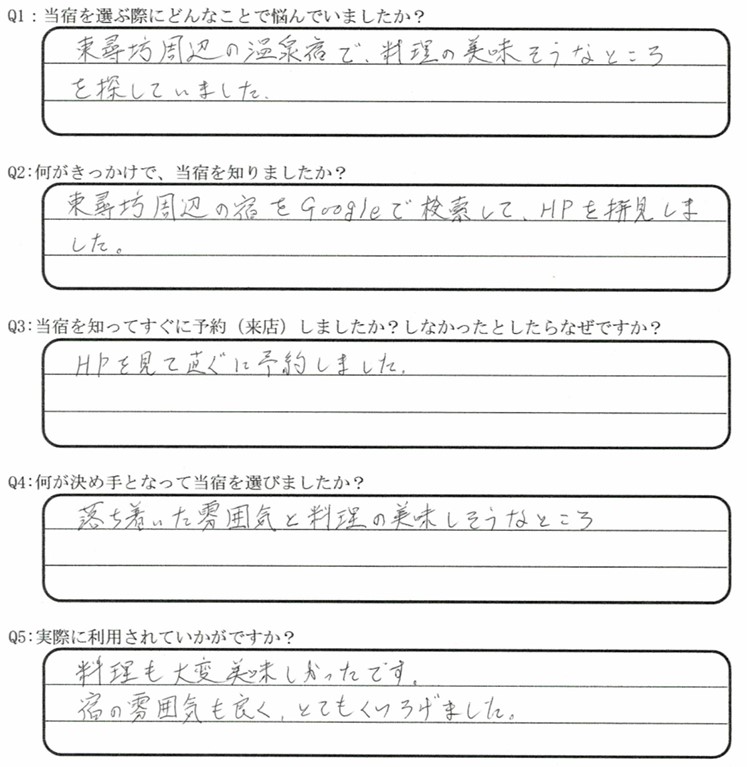 Q1：当宿を選ぶ際にどんなことで悩んでいましたか？
東尋坊周辺の温泉宿で、料理の美味そうなところ
を探していました.
Q2：何がきっかけで、当宿を知りましたか？
東尋坊周辺の宿をGoogleで検索して、HPを拝見しま
した。
Q3：当宿を知ってすぐに予約（来店）しましたか？しなかったとしたらなぜですか？
HPを見て直ぐに予約しました.
Q4：何が決め手となって当宿を選びましたか？
落ち着いた雰囲気と料理の美味しそうなところ
Q5：実際に利用されていかがですか？
料理も大変美味しかったです.
宿の雰囲気も良く、とてもくつろげました。